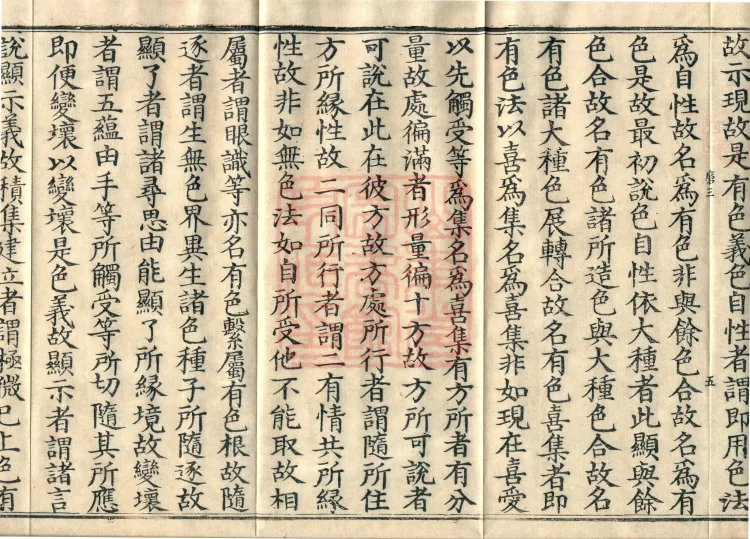 故示現故是有色義色自性者謂即用色法
磨三
五
爲自性故名爲有色非與餘色合故名爲有
色是故最初說色自性依大種者此顯與餘
色合故名有色諸所造色與大種色合故名
有色諸大種色展轉合故名有色喜集者即
有色法以喜爲集名爲喜集非如現在喜愛
以先觸受等爲集名爲喜集有方所者有分
量故處徧滿者形量徧十方故方所可說者
可說在此在彼方故方處所行者謂隨所住
方所緣性故二同所行者謂二有情共所緣
性故非如無色法如自所受他不能取故相
屬者謂眼識等亦名有色繫屬有色根故隨
逐者謂生無色界異生諸色種子所隨逐故
顯了者謂諸尋思由能顯了所緣境故變壞
者謂五蘊由手等所觸受等所切隨其所應
即便變壞以變壞是色義故顯示者謂諸言
說顯示義故積集建立者謂極微已上色有